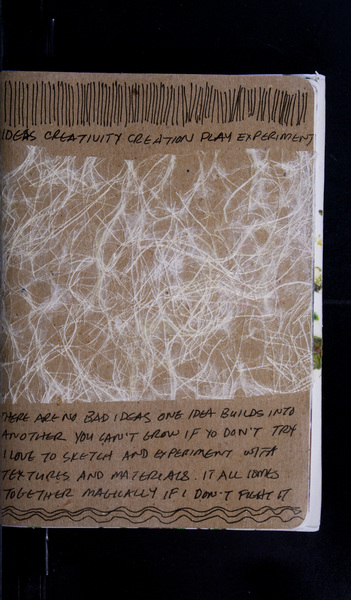 IDEAS CREATIVITY CREATION PLAY EXPERIMENT
THERE ARE NO BAD IDEAS ONE IDEA BUILDS INTO
ANOTHER YOU CAN'T GROW IF YO DON'T TRY
I LOVE TO SKETCH AND EXPERIMENT WITH
TEXTURES AND MATERIALS. IT ALL COMES
TOGETHER MAGICALLY IF I DON'T FIGHT IT